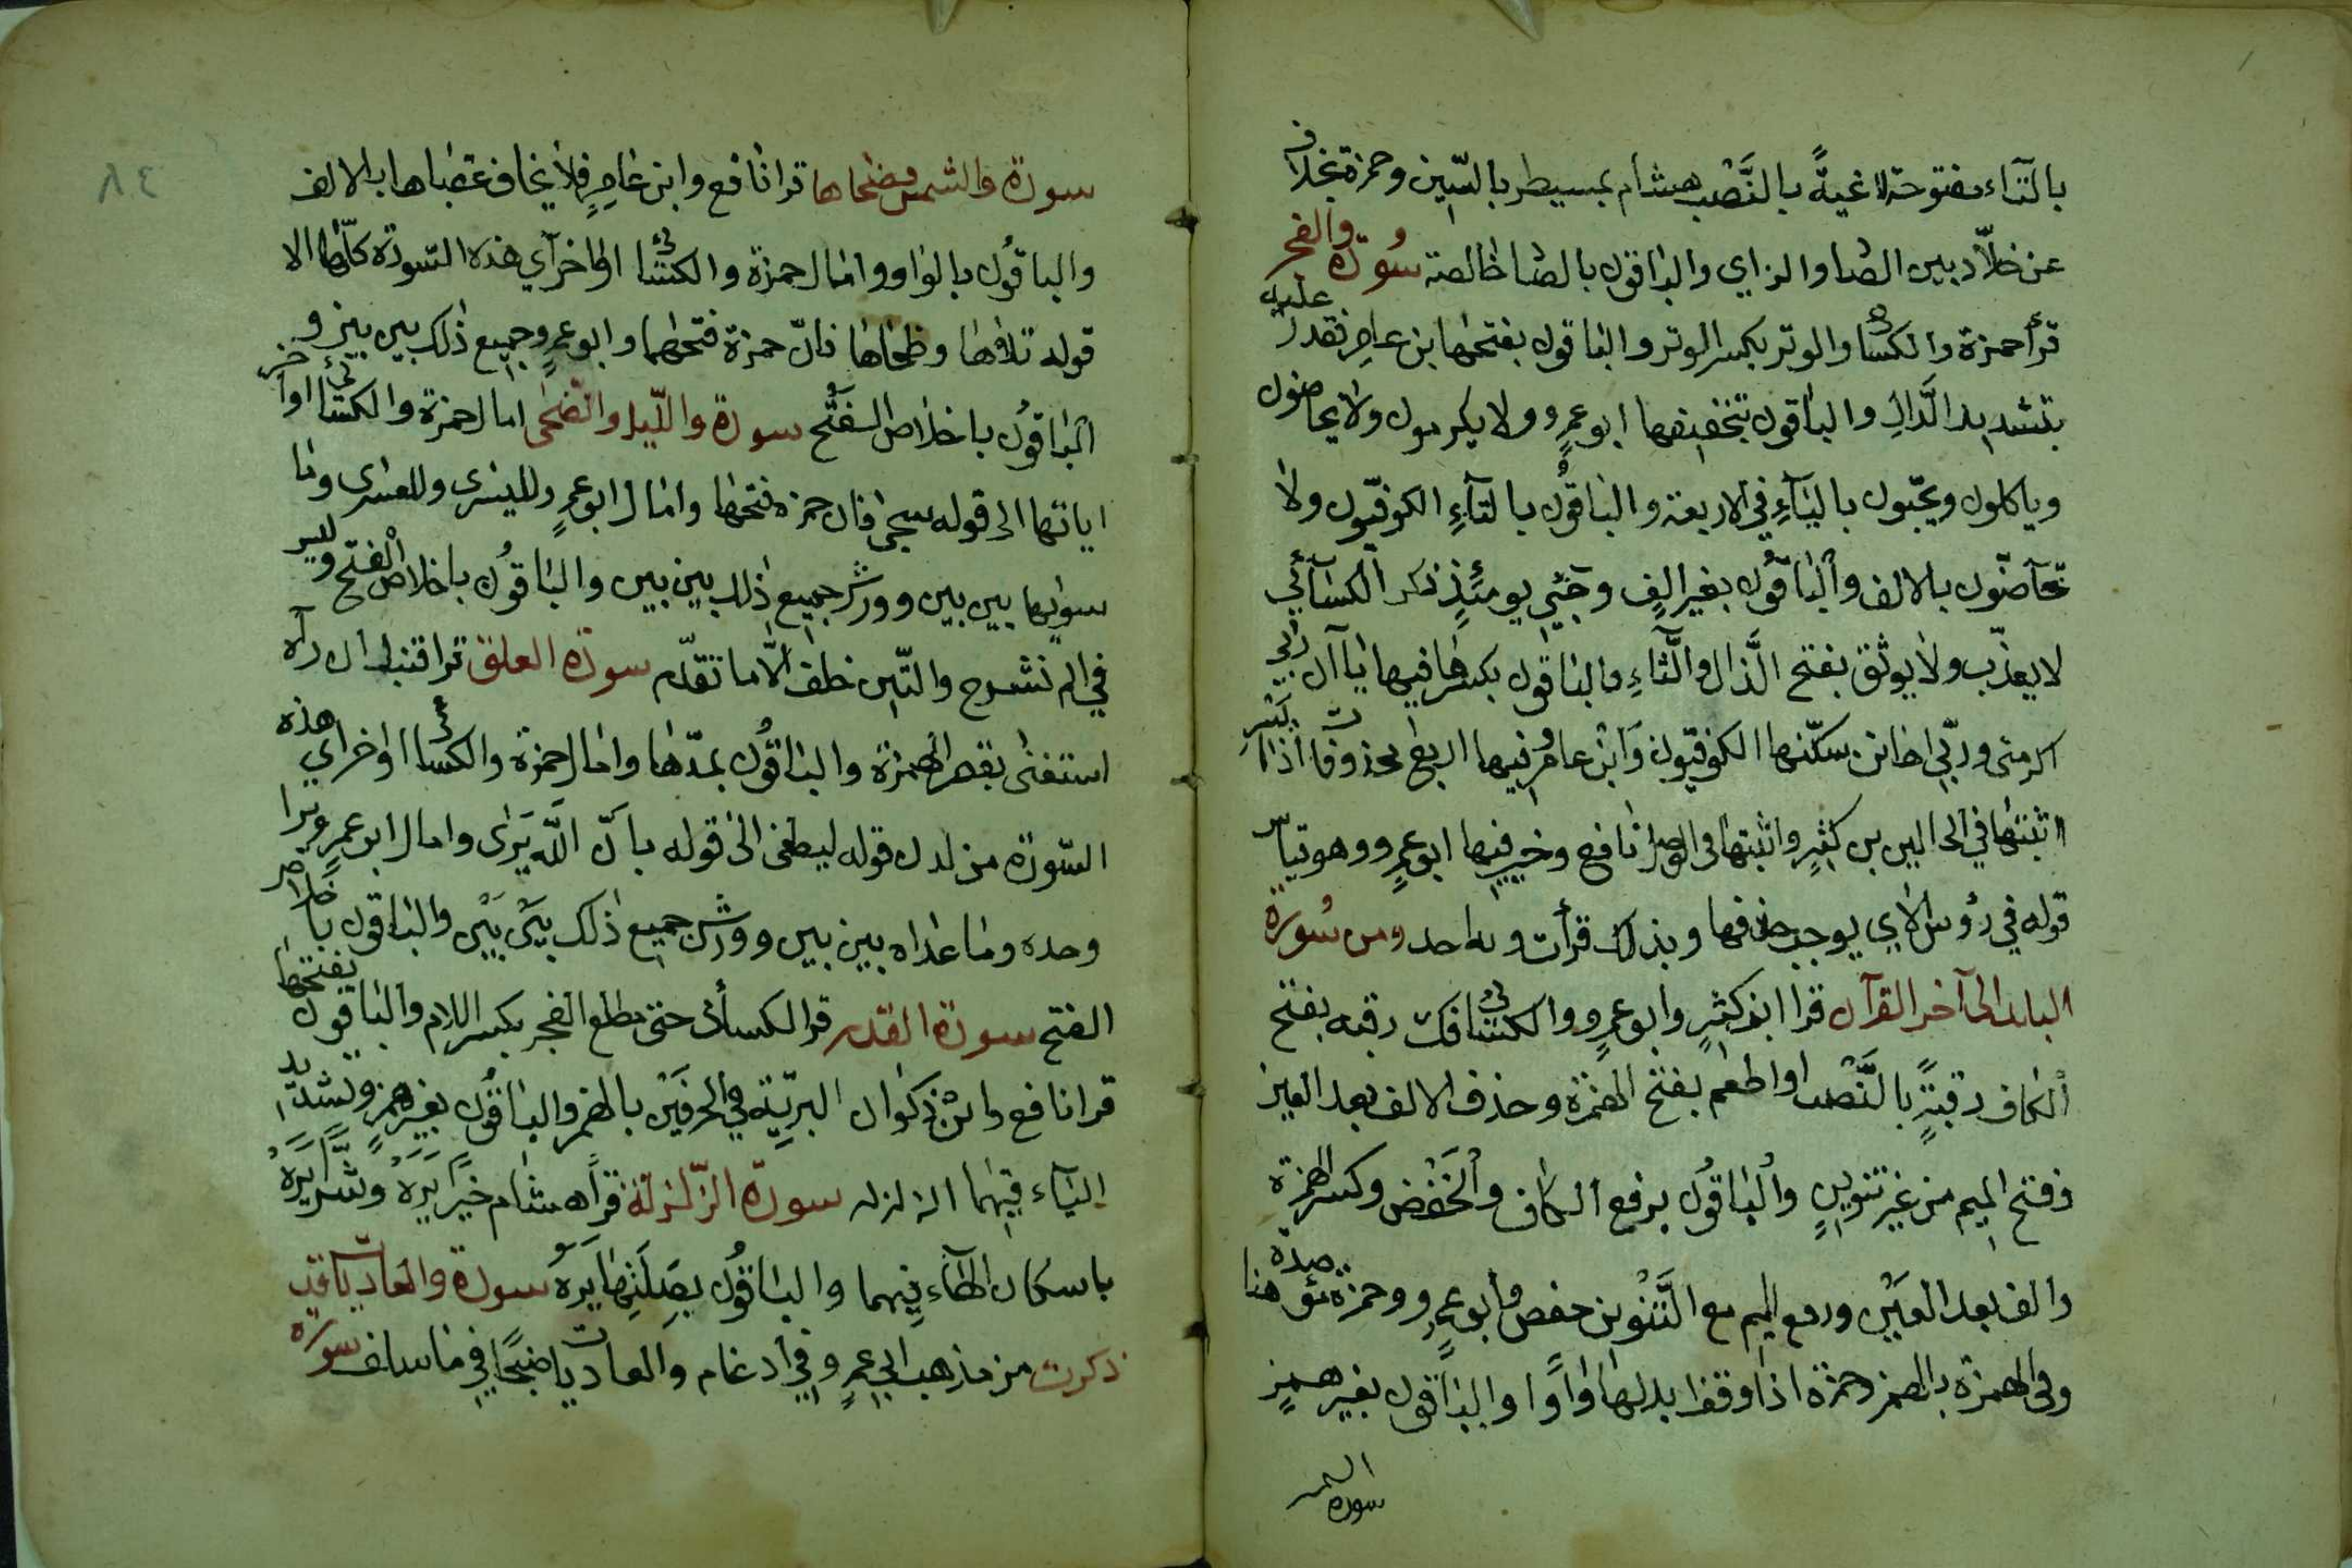 بالتاء مفتوحة لاغيةً بالنَّصْب هشام بمسيطر بالسّين وحمزة بخلاف
عن خلاّد بين الصاد والزاي والباقون بالصاد خالصة سُورة والفجر
قرأ حمزة والكسائي والوتر بكسر الواو والباقون بفتحها ابن عامر فقدر عليه
بتشديد الدَّال والباقون بتخفيفها ابو عمرٍو ولا يكرمون ولا يحاضون
وياكلون ويحبّون باليآءِ في الاربعة والباقُون بالتآءِ الكوفيّون ولا
تحآضّون بالالف والباقُون بغير الفٍ وجَئِى يومئذٍ ذكر الكسآئي
لا يعذّب ولا يوثق بفتح الَّذال والَّثاءِ والباقون بكسرهما فيها ياآن ربي
اكرمنى وربّي اهانن سكّنها الكوفيّون وَابْن عامرٍ فيها اربع محذوفات اذا يَسْرِ
اثبتها في الحالين بن كثيرٍ واثبتها في الوصل نافع وخير فيها ابو عمرٍو وهو قياس
قوله في رؤس الاي يوجب حذفها وبذلك قرأت وبه اخذ ومن سُورة
البلد الى آخر القرآن قرا ابن كثيرٍ وابو عمرٍو والكسائي فك رقبه بفتح
الكاف رقبةً بالنَّصْب او اطعم بفتح الهمزة وحذف الالف بعد العين
وفتح الميم من غير تنوينٍ والباقُون برفع الكاف والْخَفْض وكسر الهمزة
والف بعد العَيْن ورفع الميم مع التَّنْوين حفص وابو عمرٍو وحمزة مؤصدة هنا
وفي الهمزة بالهمز وحمزة اذا وقف ابدلها واوًا والباقون بغير همزٍ
سورة الشمس
سورة والشمس وضحاها قرا نافع وابن عامرٍ فلا يخاف عقباها بالالف
والباقُون بالواو وامال حمزة والكسائي اواخر آي هذه السّورة كلّها الا
قوله تلاها وطحاها فانّ حمزة فتحهما وابو عمرٍو جميع ذلك بين بين و
الباقُون باخلاص الفَتْح سورة واللّيل والضّحى امال حمزة والكسائي اواخر
اياتها الى قوله سجى فان حمزه فتحها وامال ابو عمرٍو لليسرى وللعسرى وما
سويهما بين بين وورش جميع ذلك بين بين والباقُون باخلاص الفتح وليس
في الم نشرح والتّين خلف الاّ ما تقدّم سورة العلق قرا قنبل ان رآه
استغنى بقصر الهمزة والباقُون بمدّها وامال حمزة والكسائي اواخر آي هذه
السّورة من لدن قوله ليطغى الى قوله بانّ اللّه يَرى وامال ابو عمرٍو يرا
وحده وما عداه بين بين وورش جميع ذلك بَيْن بَيْن والباقون باخلاص
الفتح سورة القدر قرا الكسائى حتى مطلع الفجر بكسر اللام والباقون بفتحها
قرا نافع وابْن ذكوان البريّة في الحرفَيْن بالهمز والباقُون بغير همزٍ وتشديد
اليآء فيهما الزلزله سورة الزّلزلة قرأ هشام خَيْرًا يَرَهْ وشَرًّا يَرَهْ
باسكان الهآء فيهما والباقُون بصِلَتِها يَرَهُ سورة والعاديات قد
ذكرت من مذهب ابي عمرٍو في ادغام والعاديات ضبحًا في ما سلف سورة